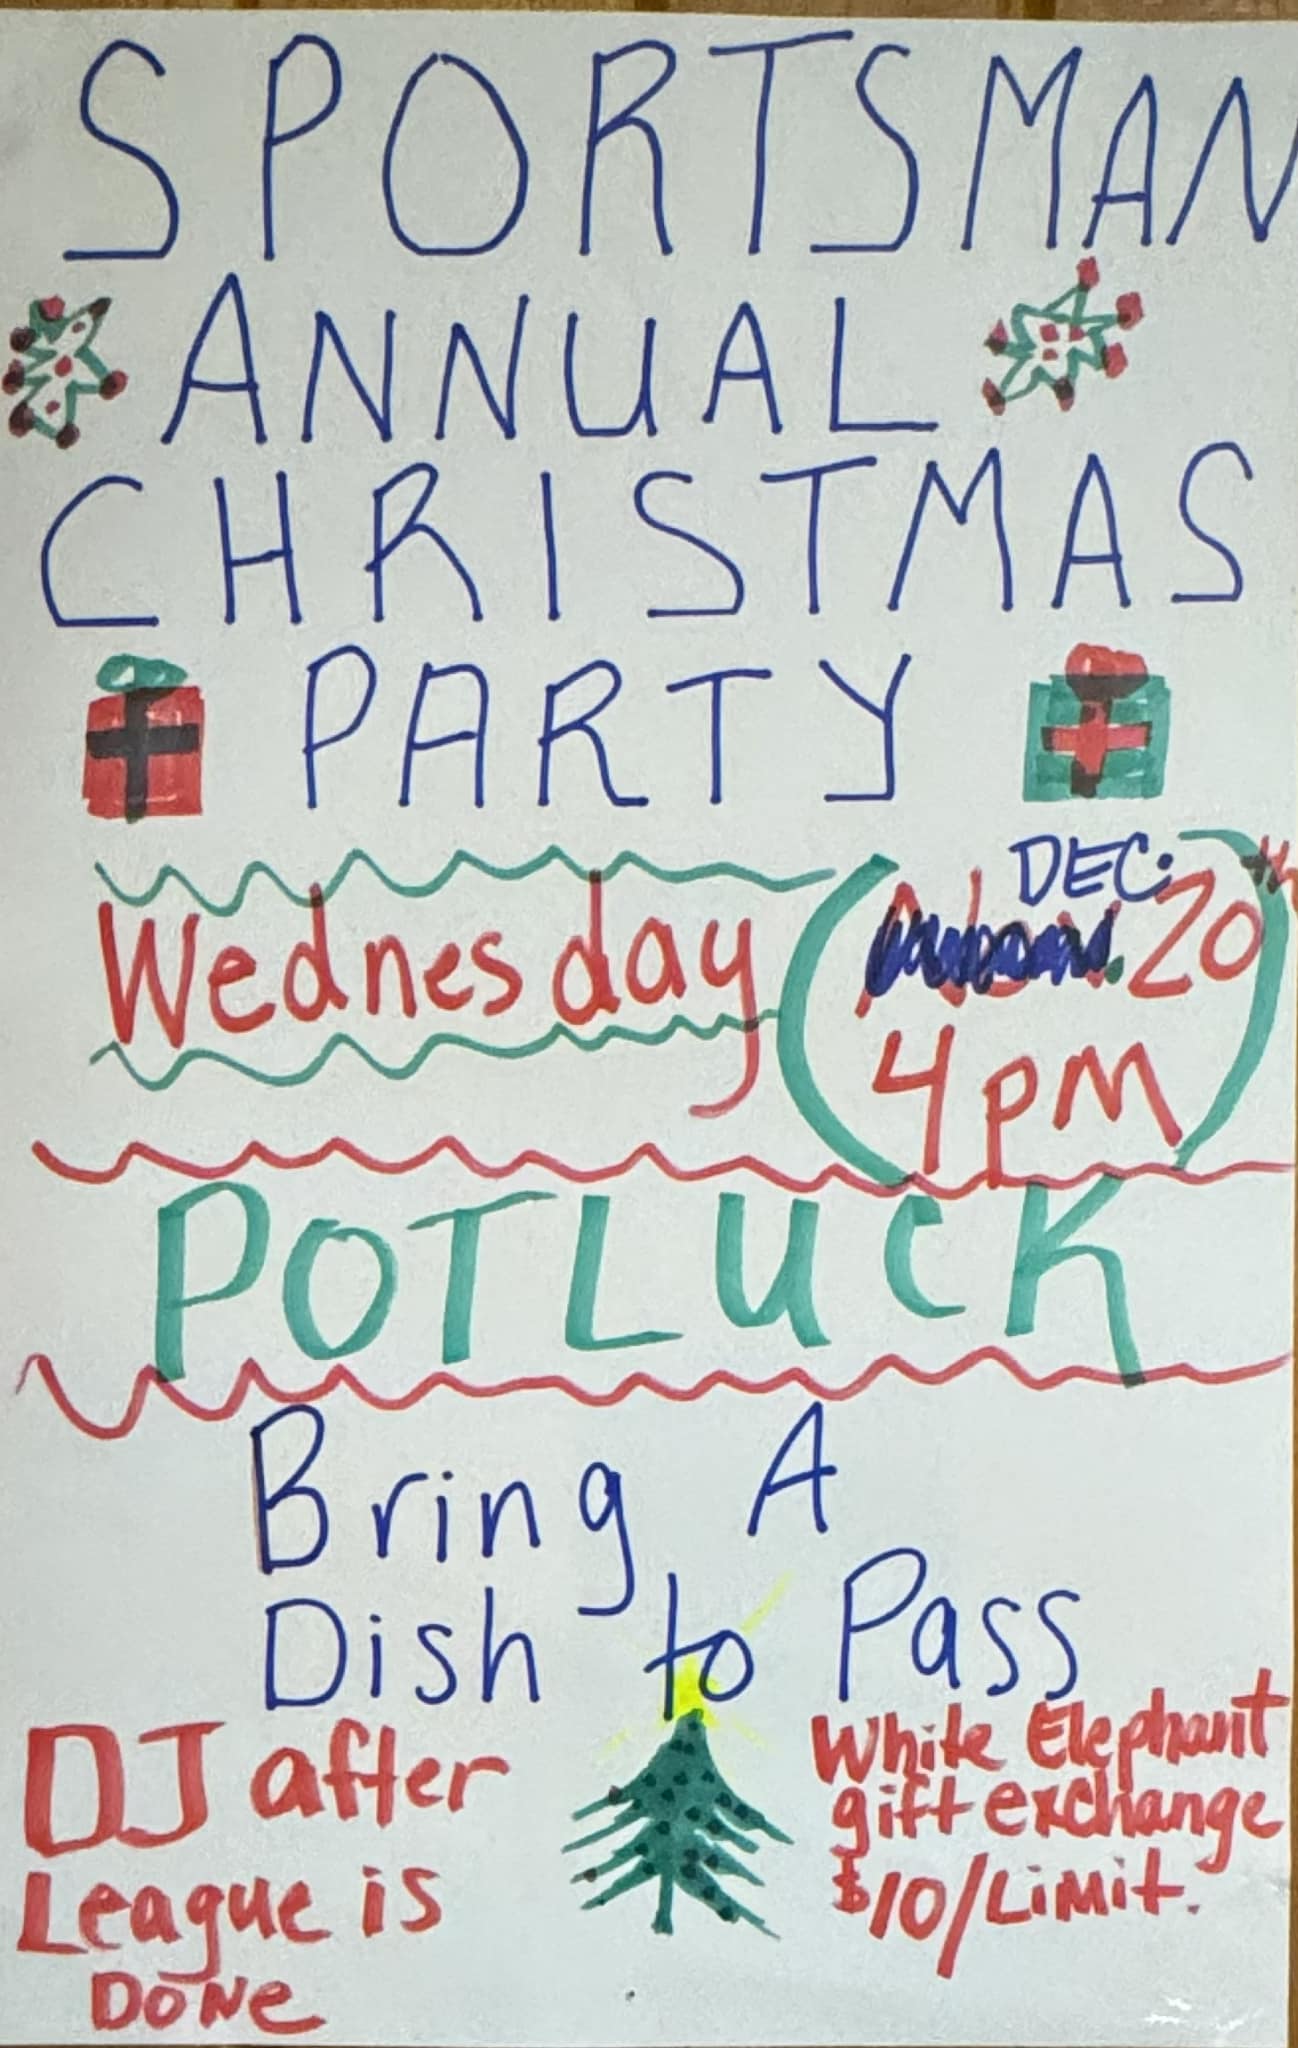 SPORTSMAN
ANNUAL
CHRISTMAS
PARTY
Wednesday DEC. 20th
4 pm
POTLUCK
Bring A
Dish to Pass
DJ after
League is
DONe
White Elephant
gift exchange
$10/LiMit.